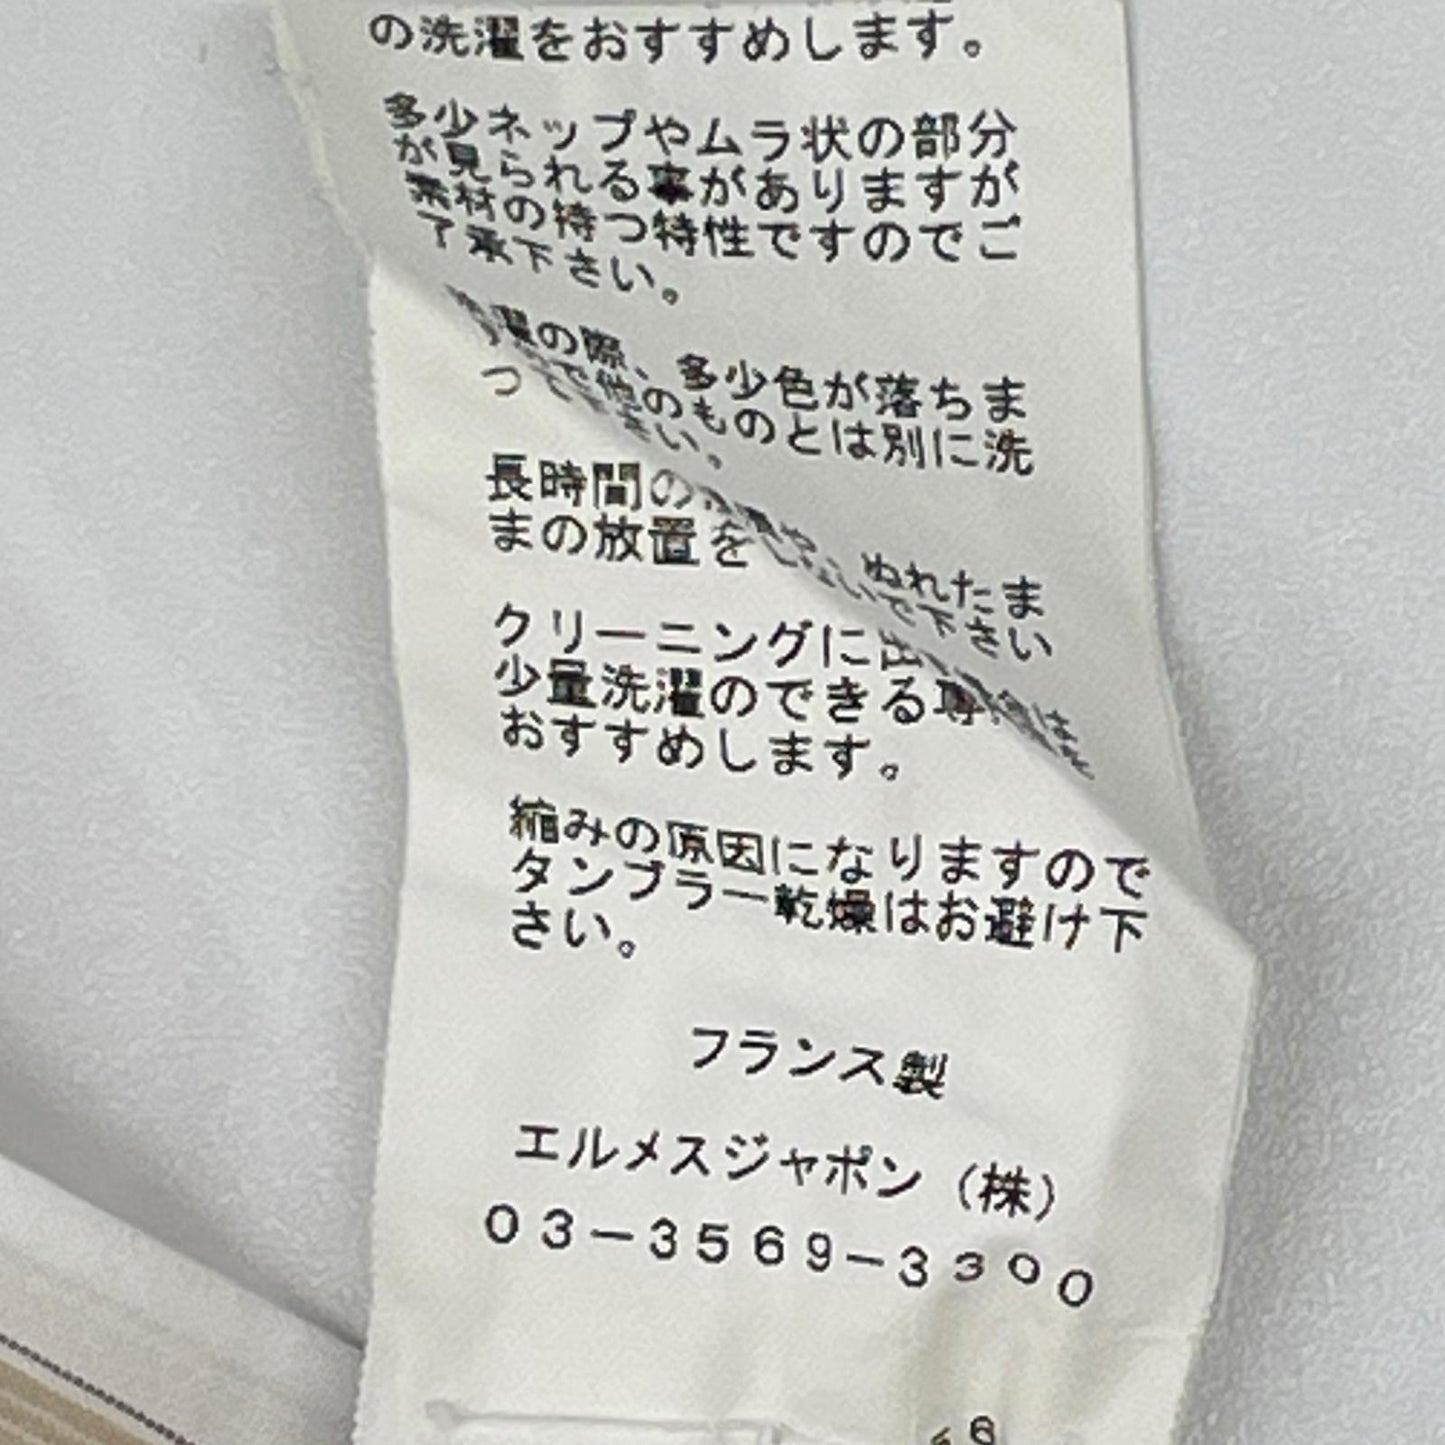 の洗濯をおすすめします。
多少ネップやムラ状の部分
が見られる事がありますが
素材の持つ特性ですのでご
了承下さい。
濯の際、多少色が落ちま
ので他のものとは別に洗
って下さい。
長時間の
ぬれたま
まの放置をしないで下さい
クリーニングに出
少量洗濯のできる専
おすすめします。
縮みの原因になりますので
タンブラー乾燥はお避け下
さい。
フランス製
エルメスジャポン（株）
０３－３５６９－３３００
6